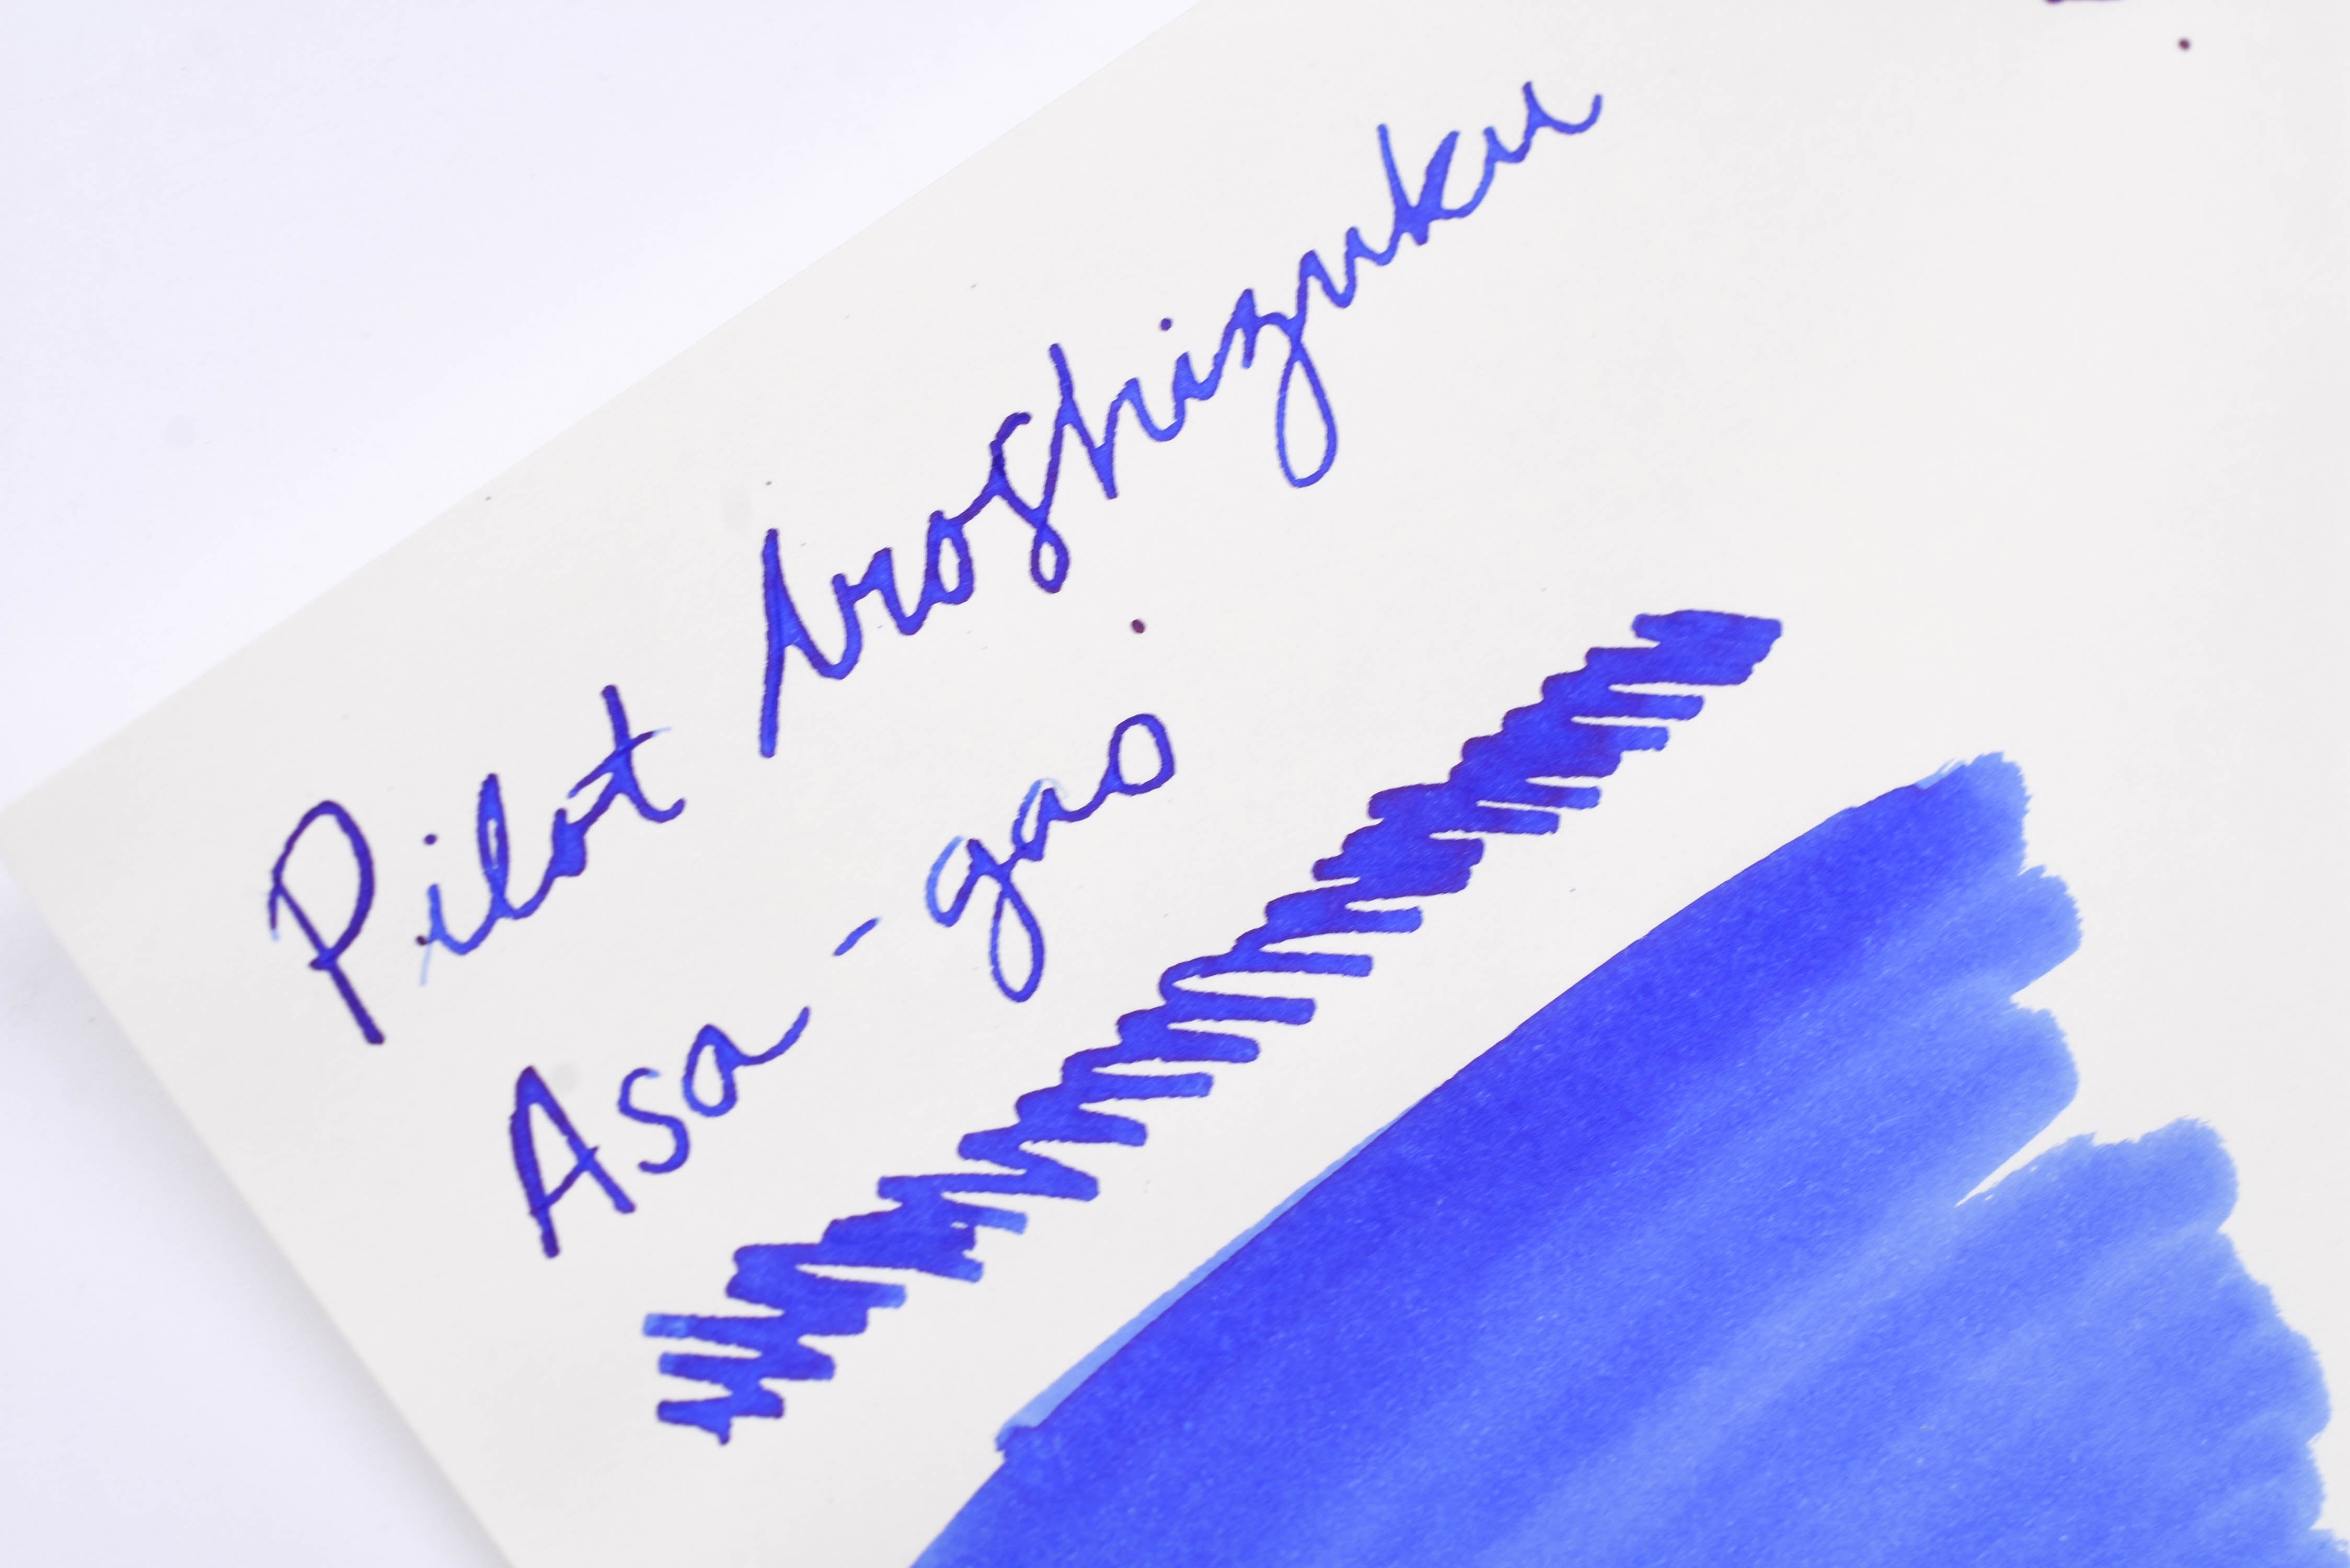 Pilot Iroshizuku
Asa-gao